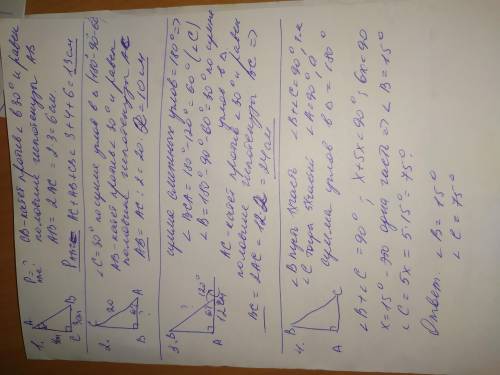 1. A P-?
CB-катет против ∠ B 30° и равен
половине гипотенузы AB
AB = 2 AC = 2·3 = 6 см
4м
C 3см B
P = AC+AB+CB = 3+4+6 = 13 см
2. C
20
B A
∠C = 30° по сумме углов в Δ (180-90-60)
AB-катет против ∠ 30° и равен
половине гипотенузы AC
AB = AC : 2 = 20 : 2 = 10 см
3. B
?
120°
A 12см
сумма смежных углов = 180° =>
∠ BCA = 180° - 120° = 60° (∠C)
∠ B = 180° - 90° - 60° = 30° по сумме
углов в Δ
AC-катет против ∠ 30° и равен
половине гипотенузы BC =>
BC = 2AC = 12·2 = 24 см
4. B
A C
∠B пусть x часть
∠C тогда 5 частей
∠B+∠C = 90°, т.к
∠A = 90°, а
сумма углов в Δ = 180°
∠B+∠C = 90° ; x+5x = 90° ; 6x = 90
x = 15° - это одна часть => ∠B = 15°
∠C = 5x = 5·15° = 75°
Ответ: ∠B = 15°
∠C = 75°